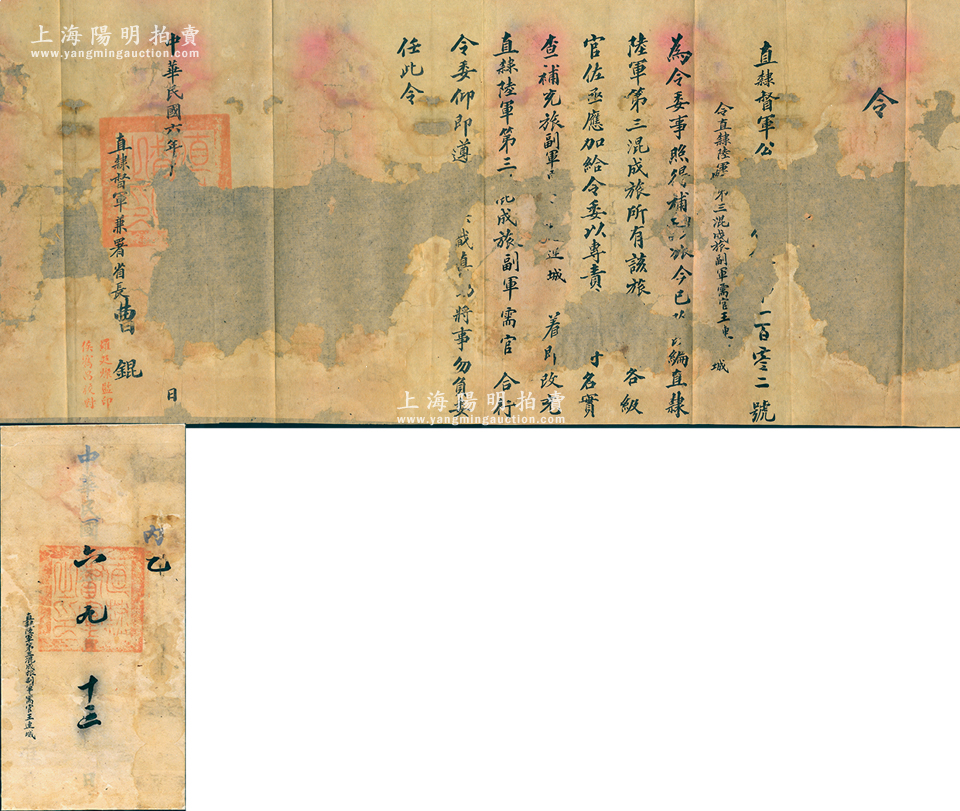 上海陽明拍賣
www.yangmingauction.com
令
直隸督軍公
一百零二號
令直隸陸軍第三混成旅副軍需官王連城
為令委事照得補充旅今已改編直隸
陸軍第三混成旅所有該旅各級
官佐亟應加給令委以專責
名實
查補充旅副軍
連城
着即改充
直隸陸軍第三混成旅副軍需官合行
令委仰即遵
將事勿負委
任此令
中華民國六年
日
直隸督軍兼署省長曹錕
監印
校對
上海陽明拍賣
www.yangmingauction.com
丙乙
中華民國六
九
十三
日
直隸陸軍第三混成旅副軍需官王連城